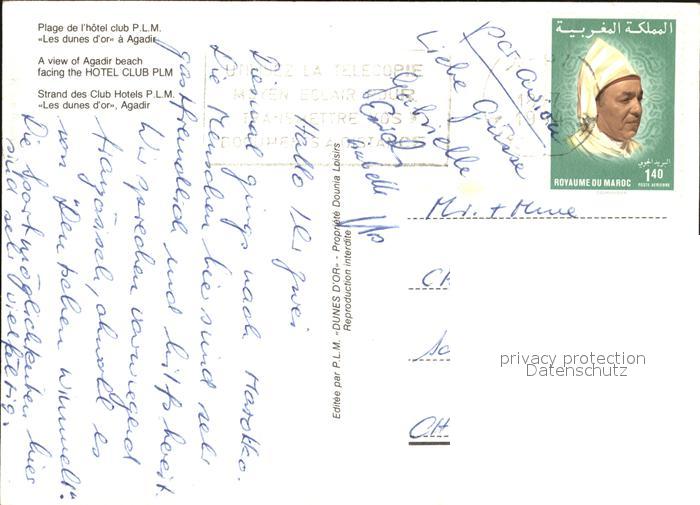 Plage de l'hôtel club P.L.M.
«Les dunes d'or» à Agadir
A view of Agadir beach
facing the HOTEL CLUB PLM
Strand des Club Hotels P.L.M.
«Les dunes d'or», Agadir
Hallo Ihr zwei
Diesmal gings nach Marokko.
Die Menschen hier sind sehr
gastfreundlich und hilfsbereit.
Wir sprechen vorwiegend
französisch, obwohl es
von "Deutschen wimmelt".
Die Sportmöglichkeiten hier
sind sehr vielfältig.
Liebe Grüsse
Gabrielle
Isabelle
Editée par P.L.M. «DUNES D'OR» - Propriété Dounia Loisirs
Reproduction interdite
LA TELECOPIE
MOYEN ECLAIR POUR
TRANSMETTRE VOS
DOCUMENTS A DISTANCE
par avion
المملكة المغربية
البريد الجوي
1,40
ROYAUME DU MAROC
POSTE AERIENNE
Mr. + Mme
CH
privacy protection
Datenschutz